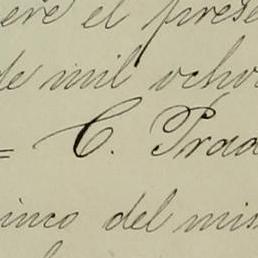 ere el prese
de mil ocho
= C. Prad
inco del mis